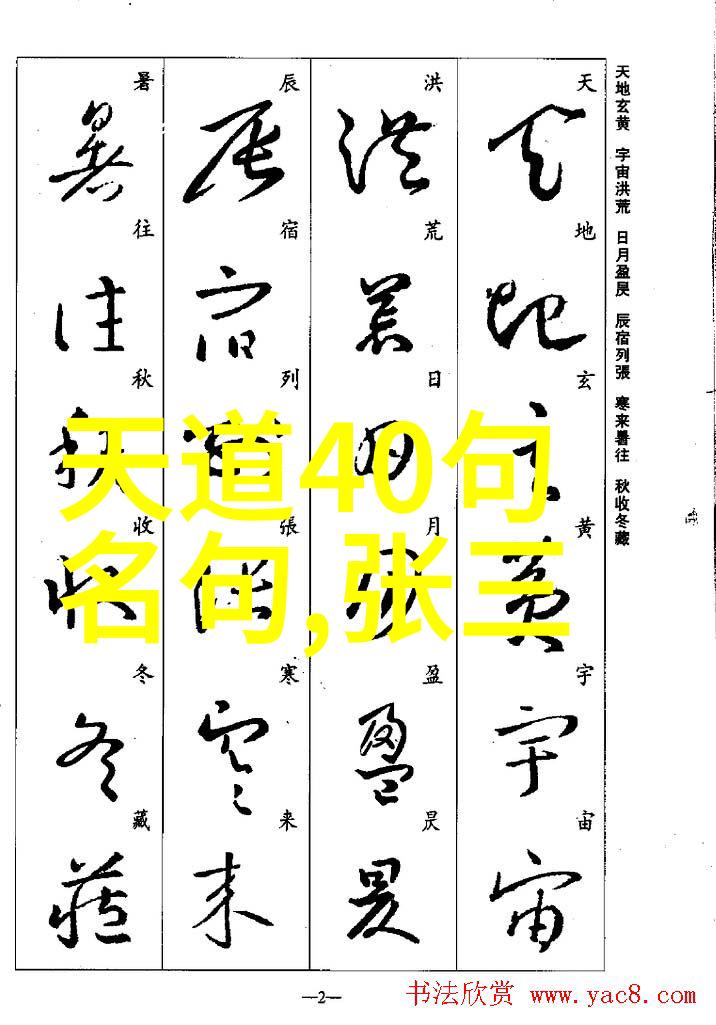 天地玄黄 宇宙洪荒 日月盈昃 辰宿列張 寒来暑往 秋收冬藏
天地玄黄宇宙
洪荒日月盈昃
辰宿列張寒来
暑往秋收冬藏
天道40句
名句,张三
—2—
书法欣赏 www.yac8.com